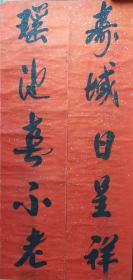 寿域日呈祥
瑶池春不老